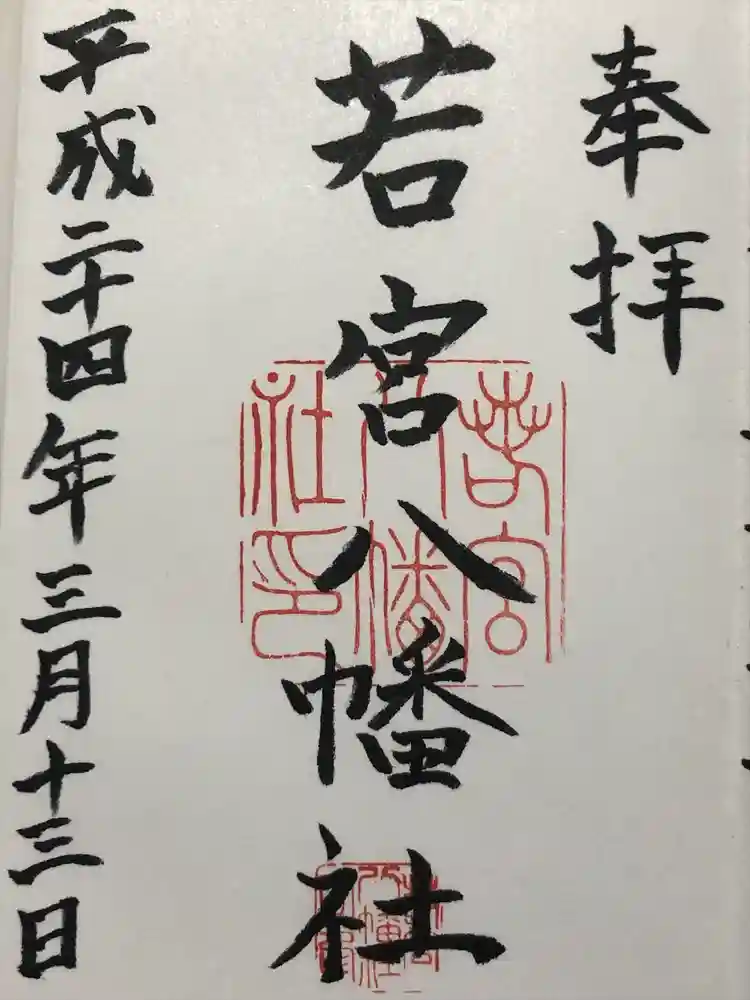 奉拝
若宮八幡社
若宮八幡社印
平成二十四年三月十三日